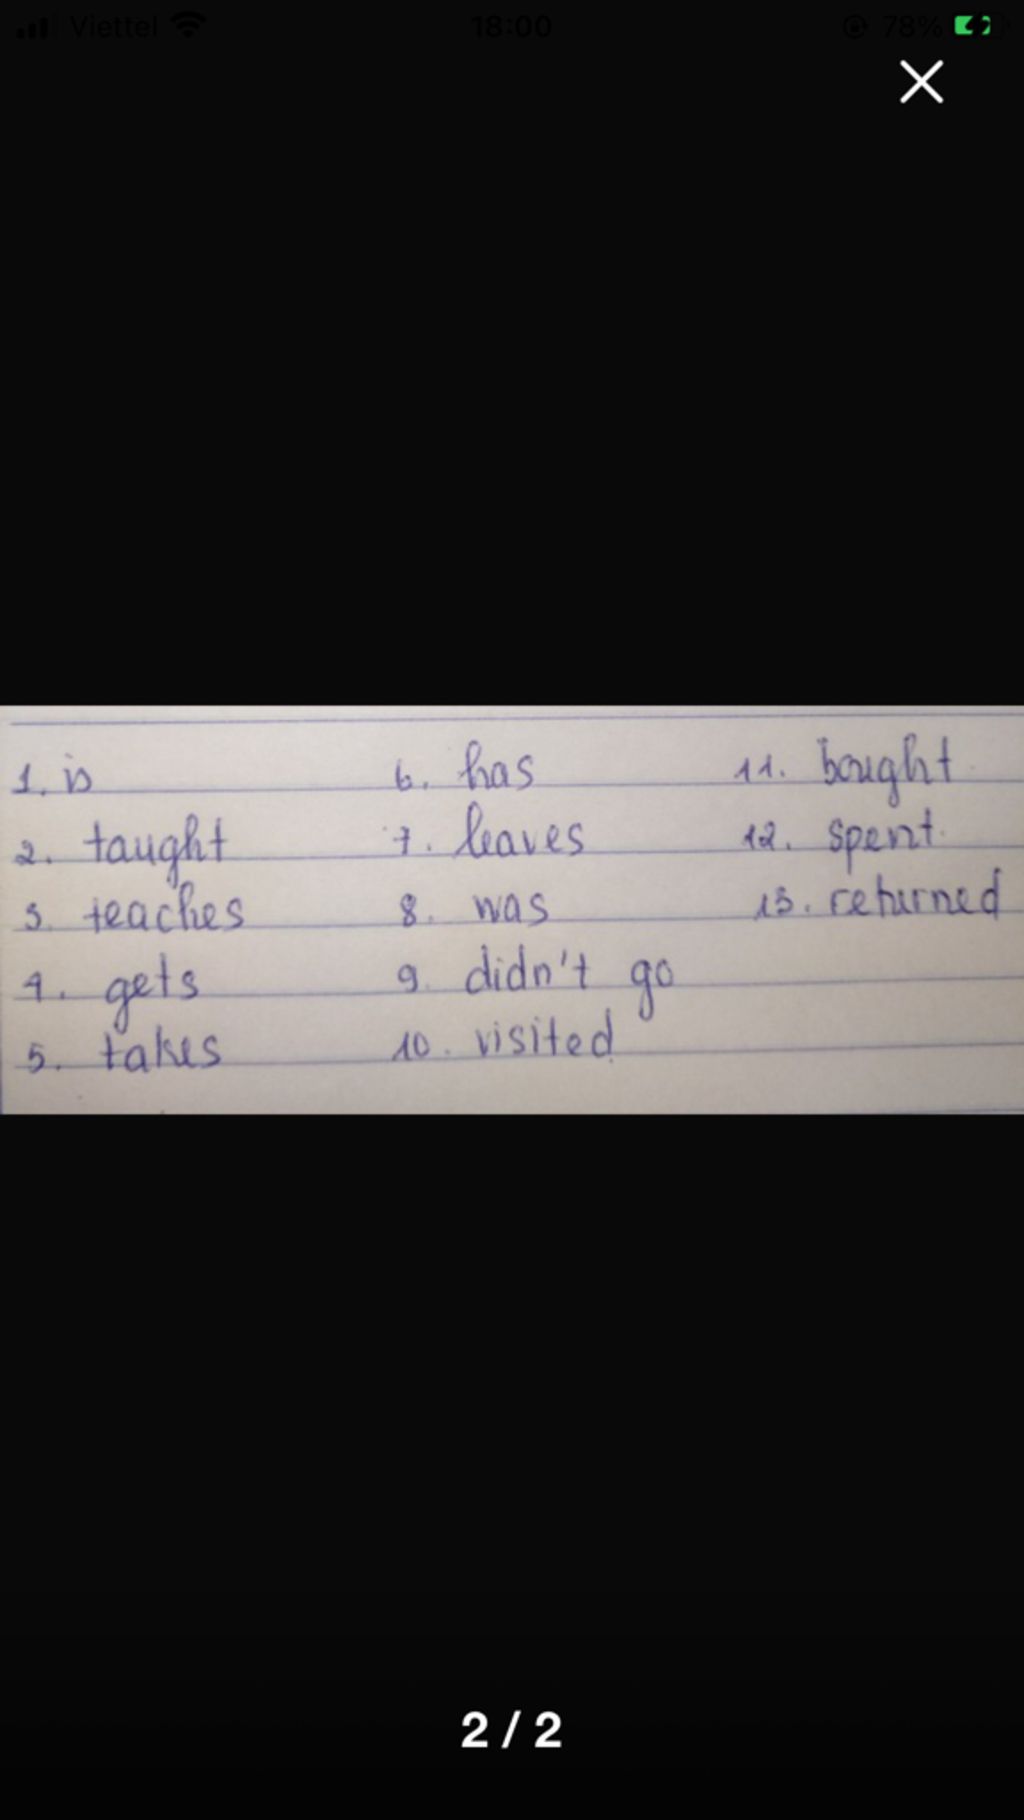 Viettel 18:00 78%
1. is 6. has 11. bought
2. taught 7. leaves 12. spent
3. teaches 8. was 13. returned
4. gets 9. didn't go
5. takes 10. visited
2 / 2